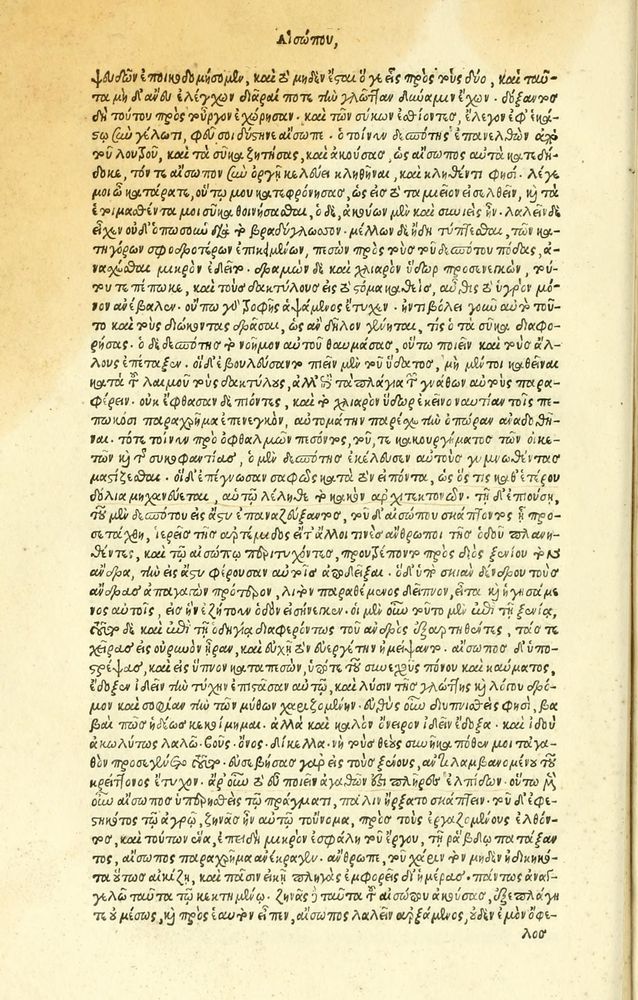 Αἰσώπου,
ψευδῶν ἐποικοδομήσομεν, καὶ τὸ μηδὲν ἔσται ὅ γε εἷς πρὸς τοὺς δύο, καὶ ταῦ-
τα μηδ' ἄνευ ἐλέγχων διᾶραί ποτε τὴν γλῶτταν δυνάμενος ἔχων. δόξαν το
δὴ τούτου πρὸς τοὖργον ἐχώρησαν. καὶ τῶν σύκων ἐσθίοντες, ἔλεγον ἐφ' ἑκά-
στῳ σὺν γέλωτι, φεῦ σοι δύστηνε αἴσωπε. ὁ τοίνυν δεσπότης ἐπανελθὼν ἀπὸ
τοῦ λουτροῦ, καὶ τὰ σῦκα ζητήσας, καὶ ἀκούσας, ὡς αἴσωπος αὐτὰ κατεδή-
δοκε, τόν τε αἴσωπον σὺν ὀργῇ κελεύει κληθῆναι, καὶ κληθέντι φησί. λέγε
μοι ὦ κατάρατε, οὕτω μου κατεφρόνησας, ὡς εἰς τὸ ταμιεῖον εἰσελθεῖν, καὶ τὰ
ἑτοιμασθέντα μοι σῦκα θοινήσασθαι, ὁ δὲ, ἀκούων μὲν καὶ συνιεὶς ἦν. λαλεῖν δὲ
εἶχεν οὐδ' ὁπωσοῦν διὰ τὸ βραδύγλωσσον. μέλλων δὲ ἤδη τύπτεσθαι, τῶν κα-
τηγόρων σφοδροτέρων ἐπικειμένων, πεσὼν πρὸς τοὺς τοῦ δεσπότου πόδας, ἀ-
νασχέσθαι μικρὸν ἐδεῖτο. δραμὼν δὲ καὶ χλιαρὸν ὕδωρ προσενεγκὼν, τοῦ-
τό τε πέπωκε, καὶ τοὺς δακτύλους εἰς τὸ στόμα καθεὶς, αὖθις τὸ ὑγρὸν μό-
νον ἀνέβαλεν. οὔπω γὰρ τροφῆς ἁψάμενος ἔτυχεν. ἠντιβόλει γοῦν αὐτὸ τοῦ-
το καὶ τοὺς διώκοντας δρᾶσαι, ὡς ἂν δῆλον γένηται, τίς ὁ τὰ σῦκα διαφο-
ρήσας. ὁ δὲ δεσπότης τὸ νοῆμον αὐτοῦ θαυμάσας, οὕτω ποιεῖν καὶ τοὺς ἄλ-
λους ἐπέταξεν. οἱ δ' ἐβουλεύσαντο πιεῖν μὲν τοῦ ὕδατος, μὴ μέντοι καθεῖναι
κατὰ τοῦ λαιμοῦ τοὺς δακτύλους, ἀλλ' εἰς τὰ πλάγια τῶν γνάθων αὐτοὺς παρα-
φέρειν. οὐκ ἔφθασαν δὲ πιόντες, καὶ τὸ χλιαρὸν ὕδωρ ἐκεῖνο ναυτίαν τοῖς πε-
πωκόσι παραχρῆμα ἐπενεγκὸν, αὐτομάτην παρέσχε τὴν ὀπώραν ἀναδοθῆ-
ναι. τότε τοίνυν πρὸ ὀφθαλμῶν πεσόντος, τοῦ, τε κακουργήματος τῶν οἰκε-
τῶν καὶ τῆς συκοφαντίας, ὁ μὲν δεσπότης ἐκέλευσεν αὐτοὺς γυμνωθέντας
μαστίζεσθαι. οἱ δ' ἐπέγνωσαν σαφῶς κατὰ τὸν εἰπόντα, ὡς ὅς τις καθ' ἑτέρου
δόλια μηχανεύεται, αὑτῷ λέληθε τὸ κακὸν ἀρχιτεκτονῶν. τῇ δ' ἐπιούσῃ,
τοῦ μὲν δεσπότου εἰς ἄστυ ἐπαναζεύξαντος, τοῦ δ' αἰσώπου σκάπτοντος ᾗ προ-
σετάχθη, ἱερεῖς τῆς ἀρτέμιδος εἴτ' ἄλλοι τινὲς ἄνθρωποι τῆς ὁδοῦ πλανη-
θέντες, καὶ τῷ αἰσώπῳ περιτυχόντες, προὔτρεπον πρὸς διὸς ξενίου τὸν
ἄνδρα, τὴν εἰς ἄστυ φέρουσαν αὐτοῖς ἀποδεῖξαι. ὁ δ' ὑπὸ σκιὰν δένδρου τοὺς
ἄνδρας ἀπαγαγὼν πρότερον, λιτὸν παραθέμενος δεῖπνον, εἶτα καὶ ἡγησάμε-
νος αὐτοῖς, εἰς ἣν ἐζήτουν ὁδὸν εἰσήνεγκεν. οἱ μὲν οὖν τοῦτο μὲν ἐπὶ τῇ ξενίᾳ,
τοῦτο δὲ καὶ ἐπὶ τῇ ὁδηγίᾳ διαφερόντως τοῦ ἀνδρὸς ἐξαρτηθέντες, τάς τε
χεῖρας εἰς οὐρανὸν ἦραν, καὶ εὐχῇ τὸν εὐεργέτην ἠμείψαντο. αἴσωπος δ' ὑπο-
στρέψας, καὶ εἰς ὕπνον καταπεσὼν, ὑπό τε τοῦ συνεχοῦς πόνου καὶ καύματος,
ἔδοξεν ἰδεῖν τὴν τύχην ἐπιστᾶσαν αὐτῷ, καὶ λύσιν τῆς γλώττης καὶ λόγου δρό-
μον καὶ σοφίαν τὴν τῶν μύθων χαριζομένην. εὐθὺς οὖν διυπνισθεὶς φησὶ, βα
βαὶ πῶς ἡδέως κεκοίμημαι. ἀλλὰ καὶ καλὸν ὄνειρον ἰδεῖν ἔδοξα. καὶ ἰδοὺ
ἀκωλύτως λαλῶ. βοῦς. ὄνος. δίκελλα. νὴ τοὺς θεοὺς συνῆκα πόθεν μοι τἀγα-
θὸν προσεγένετο τοῦτο. εὐσεβήσας γὰρ εἰς τοὺς ξένους, ἀντιλαμβανομένου τοῦ
κρείττονος ἔτυχον. ἆρ' οὖν τὸ εὖ ποιεῖν ἀγαθῶν ἐστι πλῆρες ἐλπίδων. οὕτω μὲν
οὖν αἴσωπος ὑπερησθεὶς τῷ πράγματι, πάλιν ἤρξατο σκάπτειν. τοῦ δ' ἐφε-
στηκότος τῷ ἀγρῷ, ζηνᾶς ἦν αὐτῷ τοὔνομα, πρὸς τοὺς ἐργαζομένους ἐλθόν-
τος, καὶ τούτων ἕνα, ἐπειδὴ μικρὸν ἐσφάλη τοῦ ἔργου, τῇ ῥάβδῳ πατάξαν
τος, αἴσωπος παραχρῆμα ἀνέκραγεν. ἄνθρωπε, τοῦ χάριν τὸν μηδὲν ἠδικηκό-
τα οὕτως αἰκίζῃ, καὶ πᾶσιν εἰκῆ πληγὰς ἐμφορεῖς δι' ἡμέρας. πάντως ἀναγ-
γελῶ ταῦτα τῷ κεκτημένῳ. ζηνᾶς δὲ ταῦτα τοῦ αἰσώπου ἀκούσας, ἐξεπλάγη
τε οὐ μέσως, καὶ πρὸς ἑαυτὸν εἶπεν, αἴσωπος λαλεῖν ἀρξάμενος, οὐδὲν ἐμὸν ὄφε-
λος